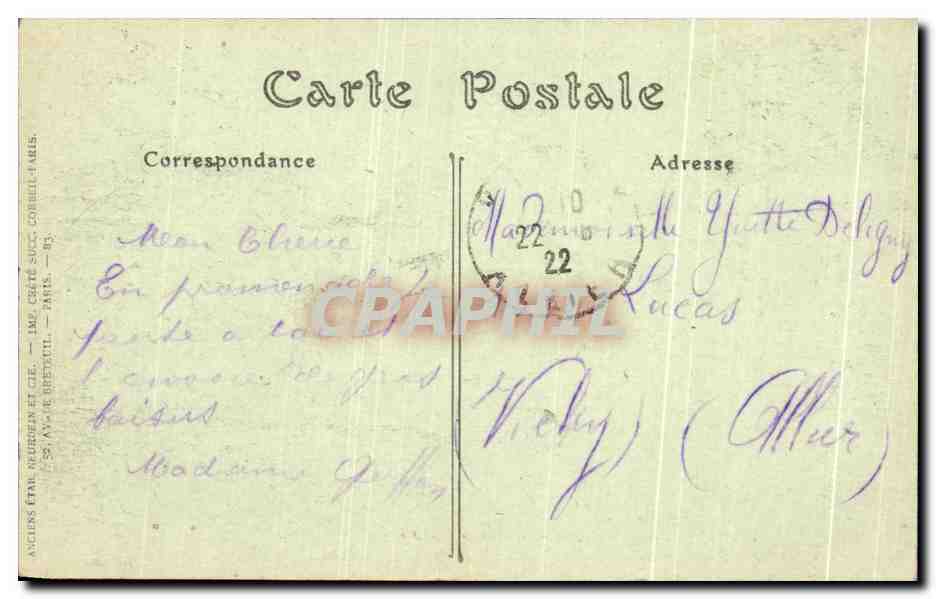 Carte Postale
Correspondance
Adresse
Mon Cherie
En promenade je
pense a toi et
t'envoie de gros
baisers
Madame
Mademoiselle Yvette Deligny
Lucas
(Vichy) (Allier)
22
22
CPAPHIL
ANCIENS ÉTAB. NEURDEIN ET CIE. — IMP. CRÉTÉ SUCC. CORBEIL-PARIS.
52, AV. DE BRETEUIL. — PARIS. — 83.